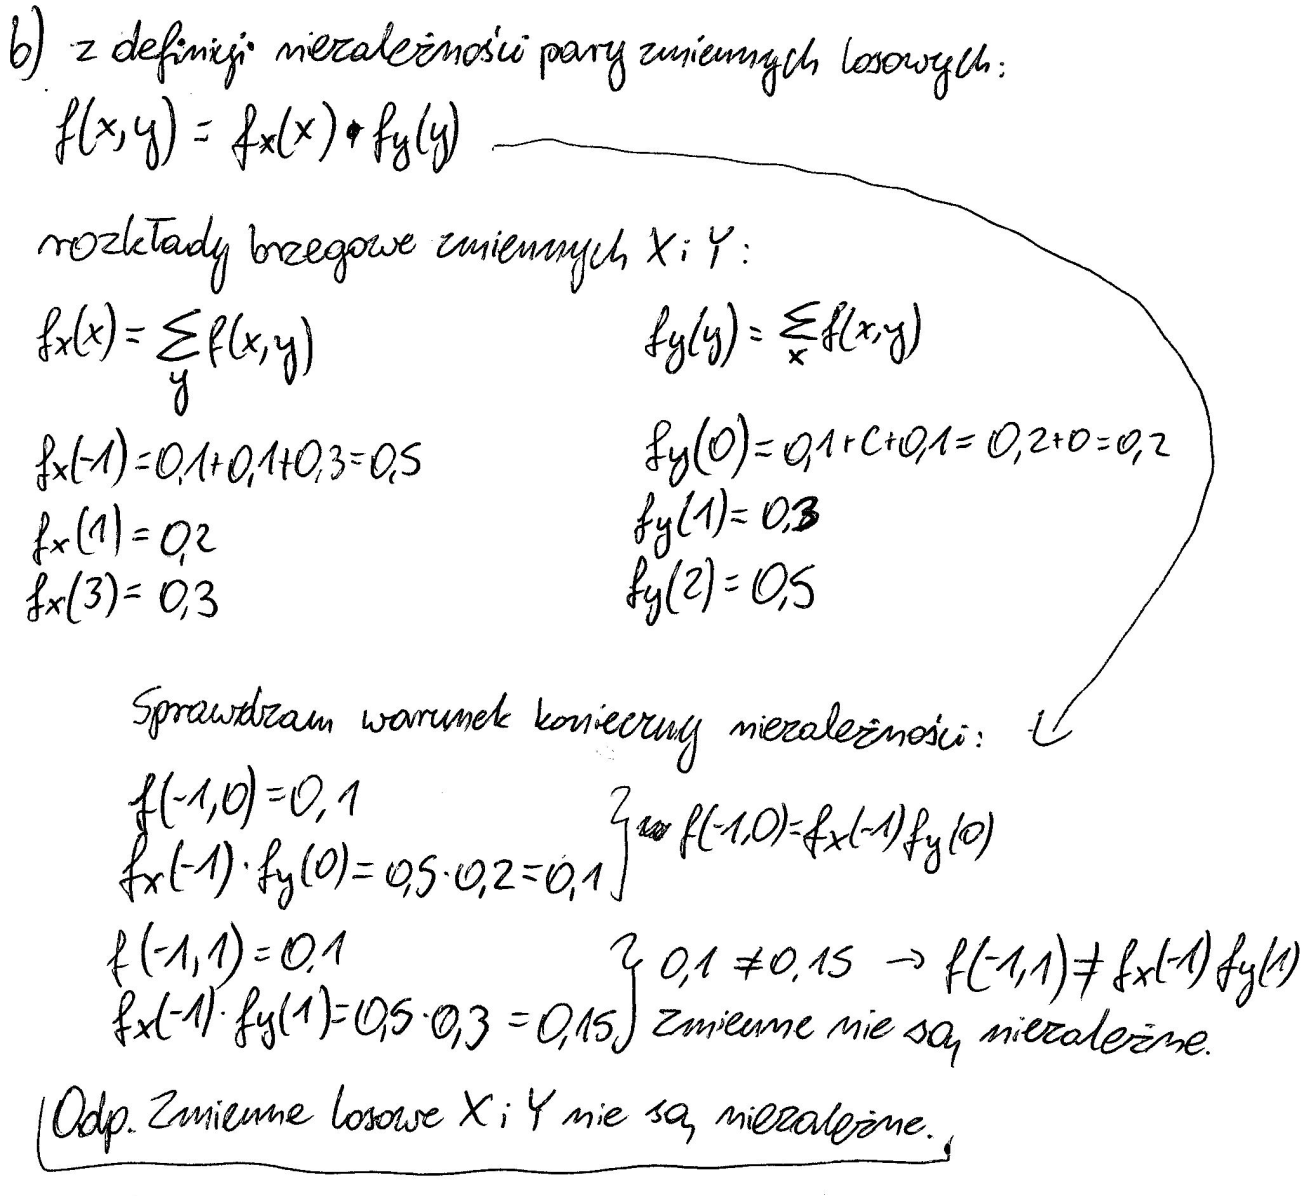 b) z definicji niezależności pary zmiennych losowych:
f(x,y) = fx(x) • fy(y)
rozkłady brzegowe zmiennych X i Y:
fx(x) = ∑y f(x,y)
fy(y) = ∑x f(x,y)
fx(-1) = 0,1+0,1+0,3=0,5
fy(0) = 0,1+C+0,1 = 0,2+0=0,2
fx(1) = 0,2
fy(1) = 0,3
fx(3) = 0,3
fy(2) = 0,5
Sprawdzam warunek konieczny niezależności:
f(-1,0)=0,1
fx(-1)·fy(0)=0,5·0,2=0,1
f(-1,0)=fx(-1)fy(0)
f(-1,1)=0,1
fx(-1)·fy(1)=0,5·0,3=0,15
0,1 ≠ 0,15 → f(-1,1) ≠ fx(-1) fy(1)
zmienne nie są niezależne.
Odp. Zmienne losowe X i Y nie są niezależne.